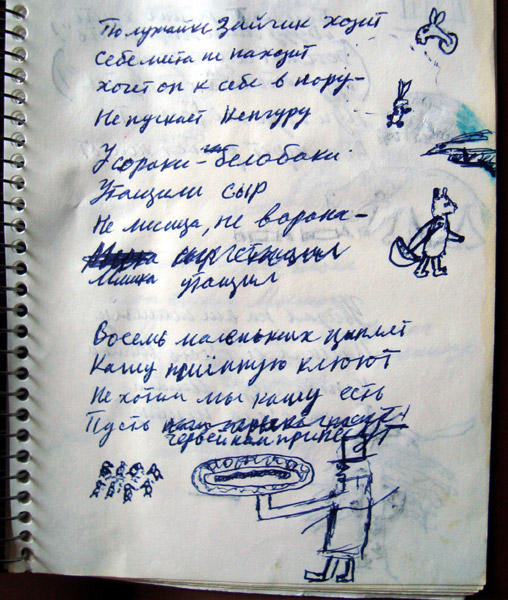 По лужайке Зайчик ходит
Себе места не находит
Хочет он к себе в нору –
Не пускает Кенгуру
У сороки – белобоки
Утащили сыр
Не лисица, не ворона –
Мишка утащил
Восемь маленьких цыплят
Кашу пшённую клюют
Не хотим мы кашу есть
Пусть
червей нам принесут